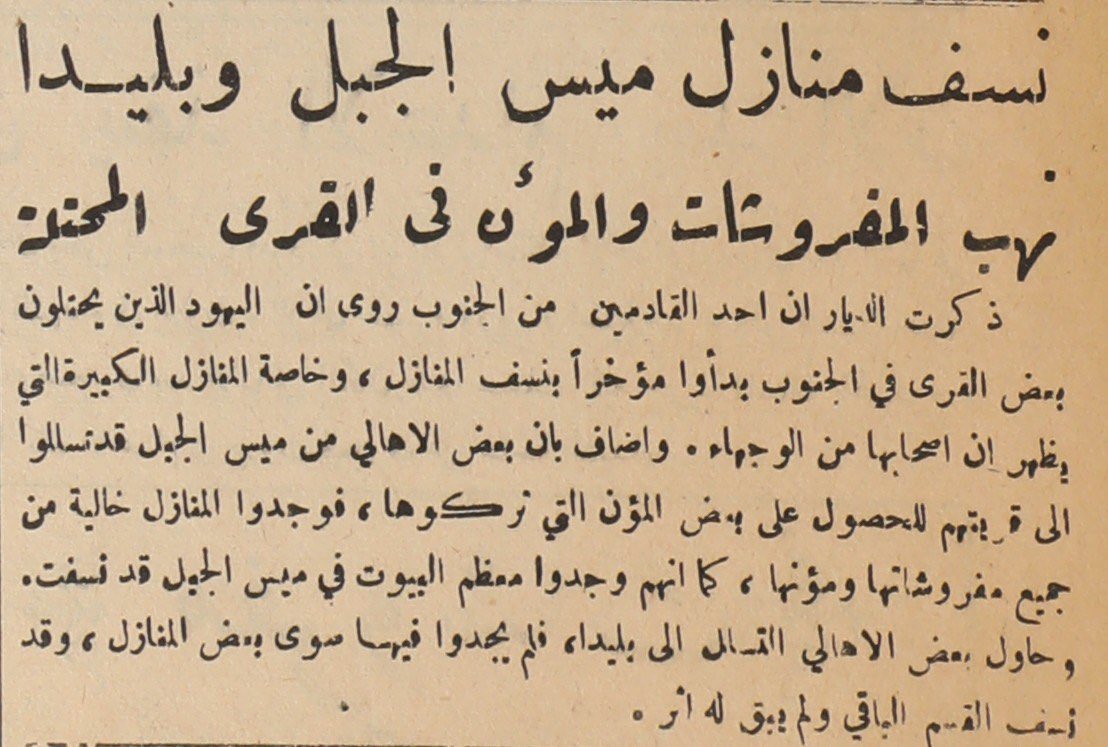 نسف منازل ميس الجبل وبليدا
نهب المفروشات والمؤن في القرى المحتلة
ذكرت الديار ان احد القادمين من الجنوب روى ان اليهود الذين يحتلون
بعض القرى في الجنوب بدأوا مؤخراً بنسف المنازل ، وخاصة المنازل الكبيرة التي
يظهر ان اصحابها من الوجهاء . واضاف بان بعض الاهالي من ميس الجبل قد تسللوا
الى قريتهم للحصول على بعض المؤن التي تركوها ، فوجدوا المنازل خالية من
جميع مفروشاتها ومؤنها ، كما انهم وجدوا معظم البيوت في ميس الجبل قد نسفت .
وحاول بعض الاهالي التسلل الى بليدا ، فلم يجدوا فيها سوى بعض المنازل ، وقد
نسف القسم الباقي ولم يبق له اثر .